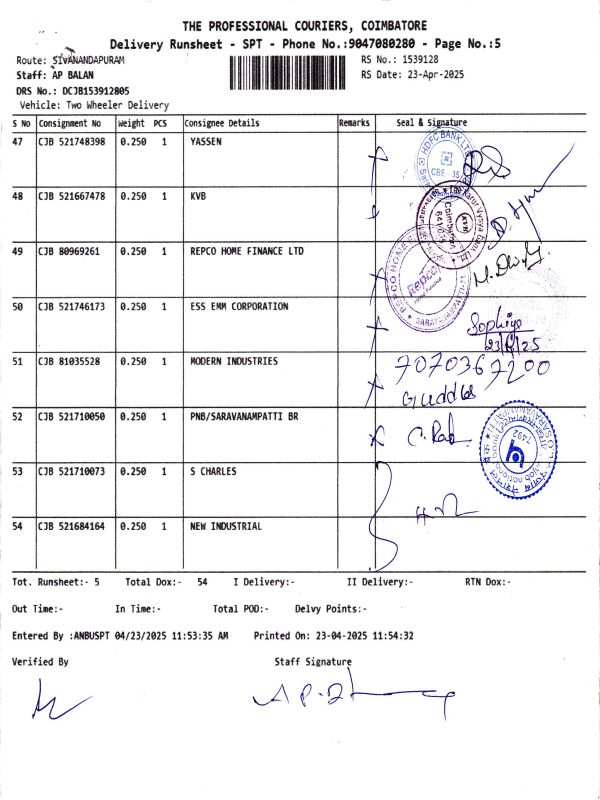 THE PROFESSIONAL COURIERS, COIMBATORE
Delivery Runsheet - SPT - Phone No.:9047080280 - Page No.:5
Route: SIVANANDAPURAM
RS No.: 1539128
Staff: AP BALAN
RS Date: 23-Apr-2025
DRS No.: DCJB153912805
Vehicle: Two Wheeler Delivery
S No Consignment No Weight PCS Consignee Details Remarks Seal & Signature
47 CJB 521748398 0.250 1 YASSEN
HDFC BANK LTD
48 CJB 521667478 0.250 1 KVB
49 CJB 80969261 0.250 1 REPCO HOME FINANCE LTD
50 CJB 521746173 0.250 1 ESS EMM CORPORATION
Sophiya
51 CJB 81035528 0.250 1 MODERN INDUSTRIES
7070367200
Guddu
52 CJB 521710050 0.250 1 PNB/SARAVANAMPATTI BR
53 CJB 521710073 0.250 1 S CHARLES
54 CJB 521684164 0.250 1 NEW INDUSTRIAL
Tot. Runsheet:- 5 Total Dox:- 54 I Delivery:- II Delivery:- RTN Dox:-
Out Time:- In Time:- Total POD:- Delvy Points:-
Entered By :ANBUSPT 04/23/2025 11:53:35 AM Printed On: 23-04-2025 11:54:32
Verified By Staff Signature